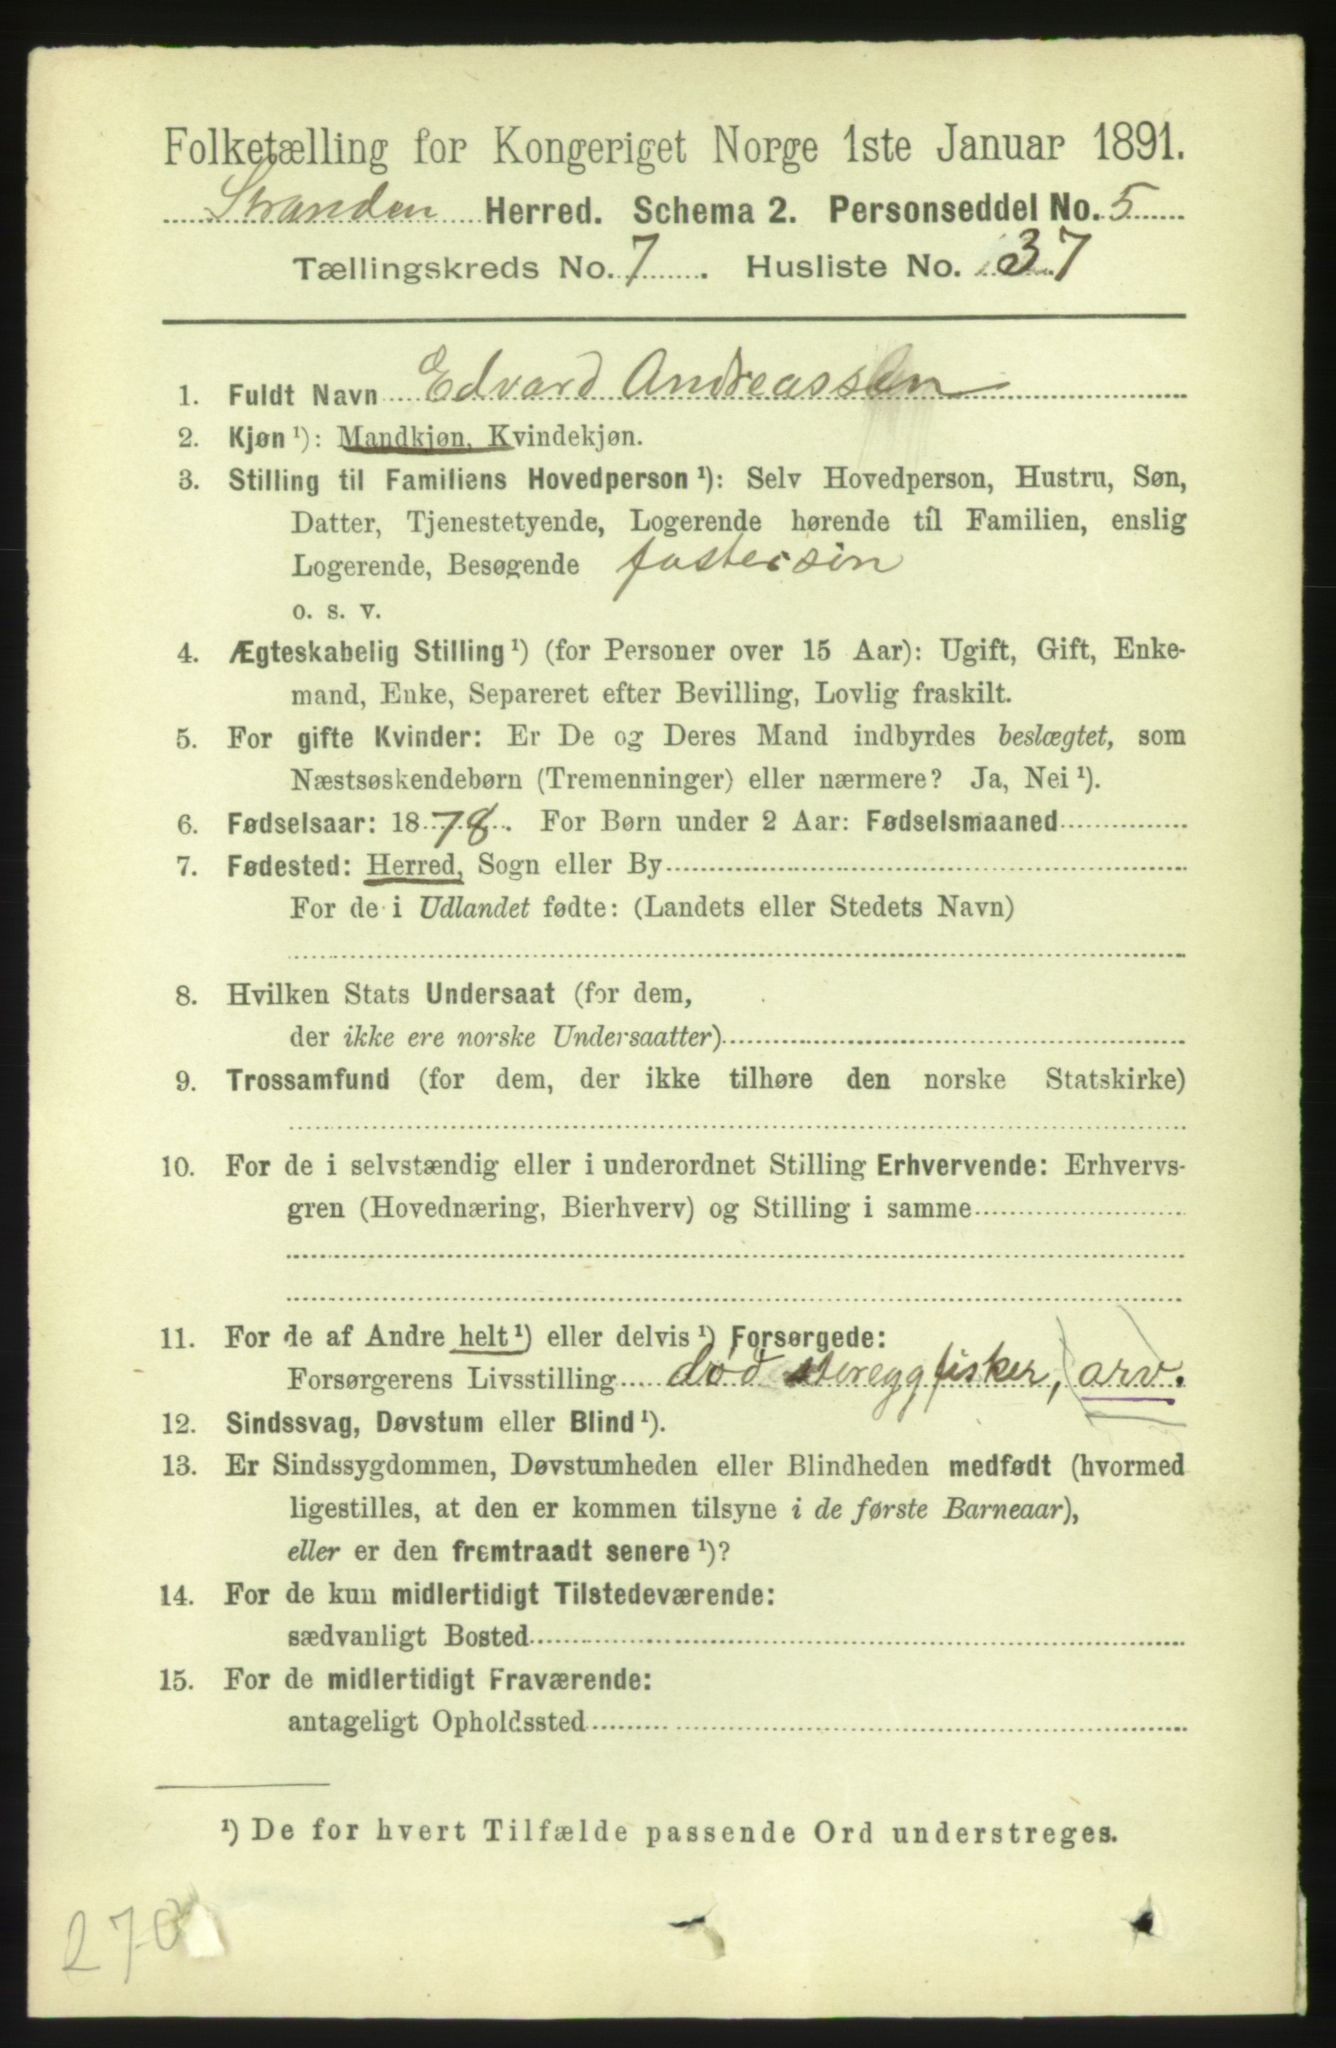 Folketælling for Kongeriget Norge 1ste Januar 1891.
Stranden Herred. Schema 2. Personseddel No. 5
Tællingskreds No. 7. Husliste No. 37
1. Fuldt Navn Edvard Andreassen
2. Kjøn ¹): Mandkjøn, Kvindekjøn.
3. Stilling til Familiens Hovedperson ¹): Selv Hovedperson, Hustru, Søn,
Datter, Tjenestetyende, Logerende hørende til Familien, enslig
Logerende, Besøgende fostersøn
o. s. v.
4. Ægteskabelig Stilling ¹) (for Personer over 15 Aar): Ugift, Gift, Enke-
mand, Enke, Separeret efter Bevilling, Lovlig fraskilt.
5. For gifte Kvinder: Er De og Deres Mand indbyrdes beslægtet, som
Næstsøskendebørn (Tremenninger) eller nærmere? Ja, Nei ¹).
6. Fødselsaar: 1878. For Børn under 2 Aar: Fødselsmaaned
7. Fødested: Herred, Sogn eller By
For de i Udlandet fødte: (Landets eller Stedets Navn)
8. Hvilken Stats Undersaat (for dem,
der ikke ere norske Undersaatter)
9. Trossamfund (for dem, der ikke tilhøre den norske Statskirke)
10. For de i selvstændig eller i underordnet Stilling Erhvervende: Erhvervs-
gren (Hovednæring, Bierhverv) og Stilling i samme
11. For de af Andre helt ¹) eller delvis ¹) Forsørgede:
Forsørgerens Livsstilling død fisker, arv.
12. Sindssvag, Døvstum eller Blind ¹).
13. Er Sindssygdommen, Døvstumheden eller Blindheden medfødt (hvormed
ligestilles, at den er kommen tilsyne i de første Barneaar),
eller er den fremtraadt senere ¹)?
14. For de kun midlertidigt Tilstedeværende:
sædvanligt Bosted
15. For de midlertidigt Fraværende:
antageligt Opholdssted
¹) De for hvert Tilfælde passende Ord understreges.
270